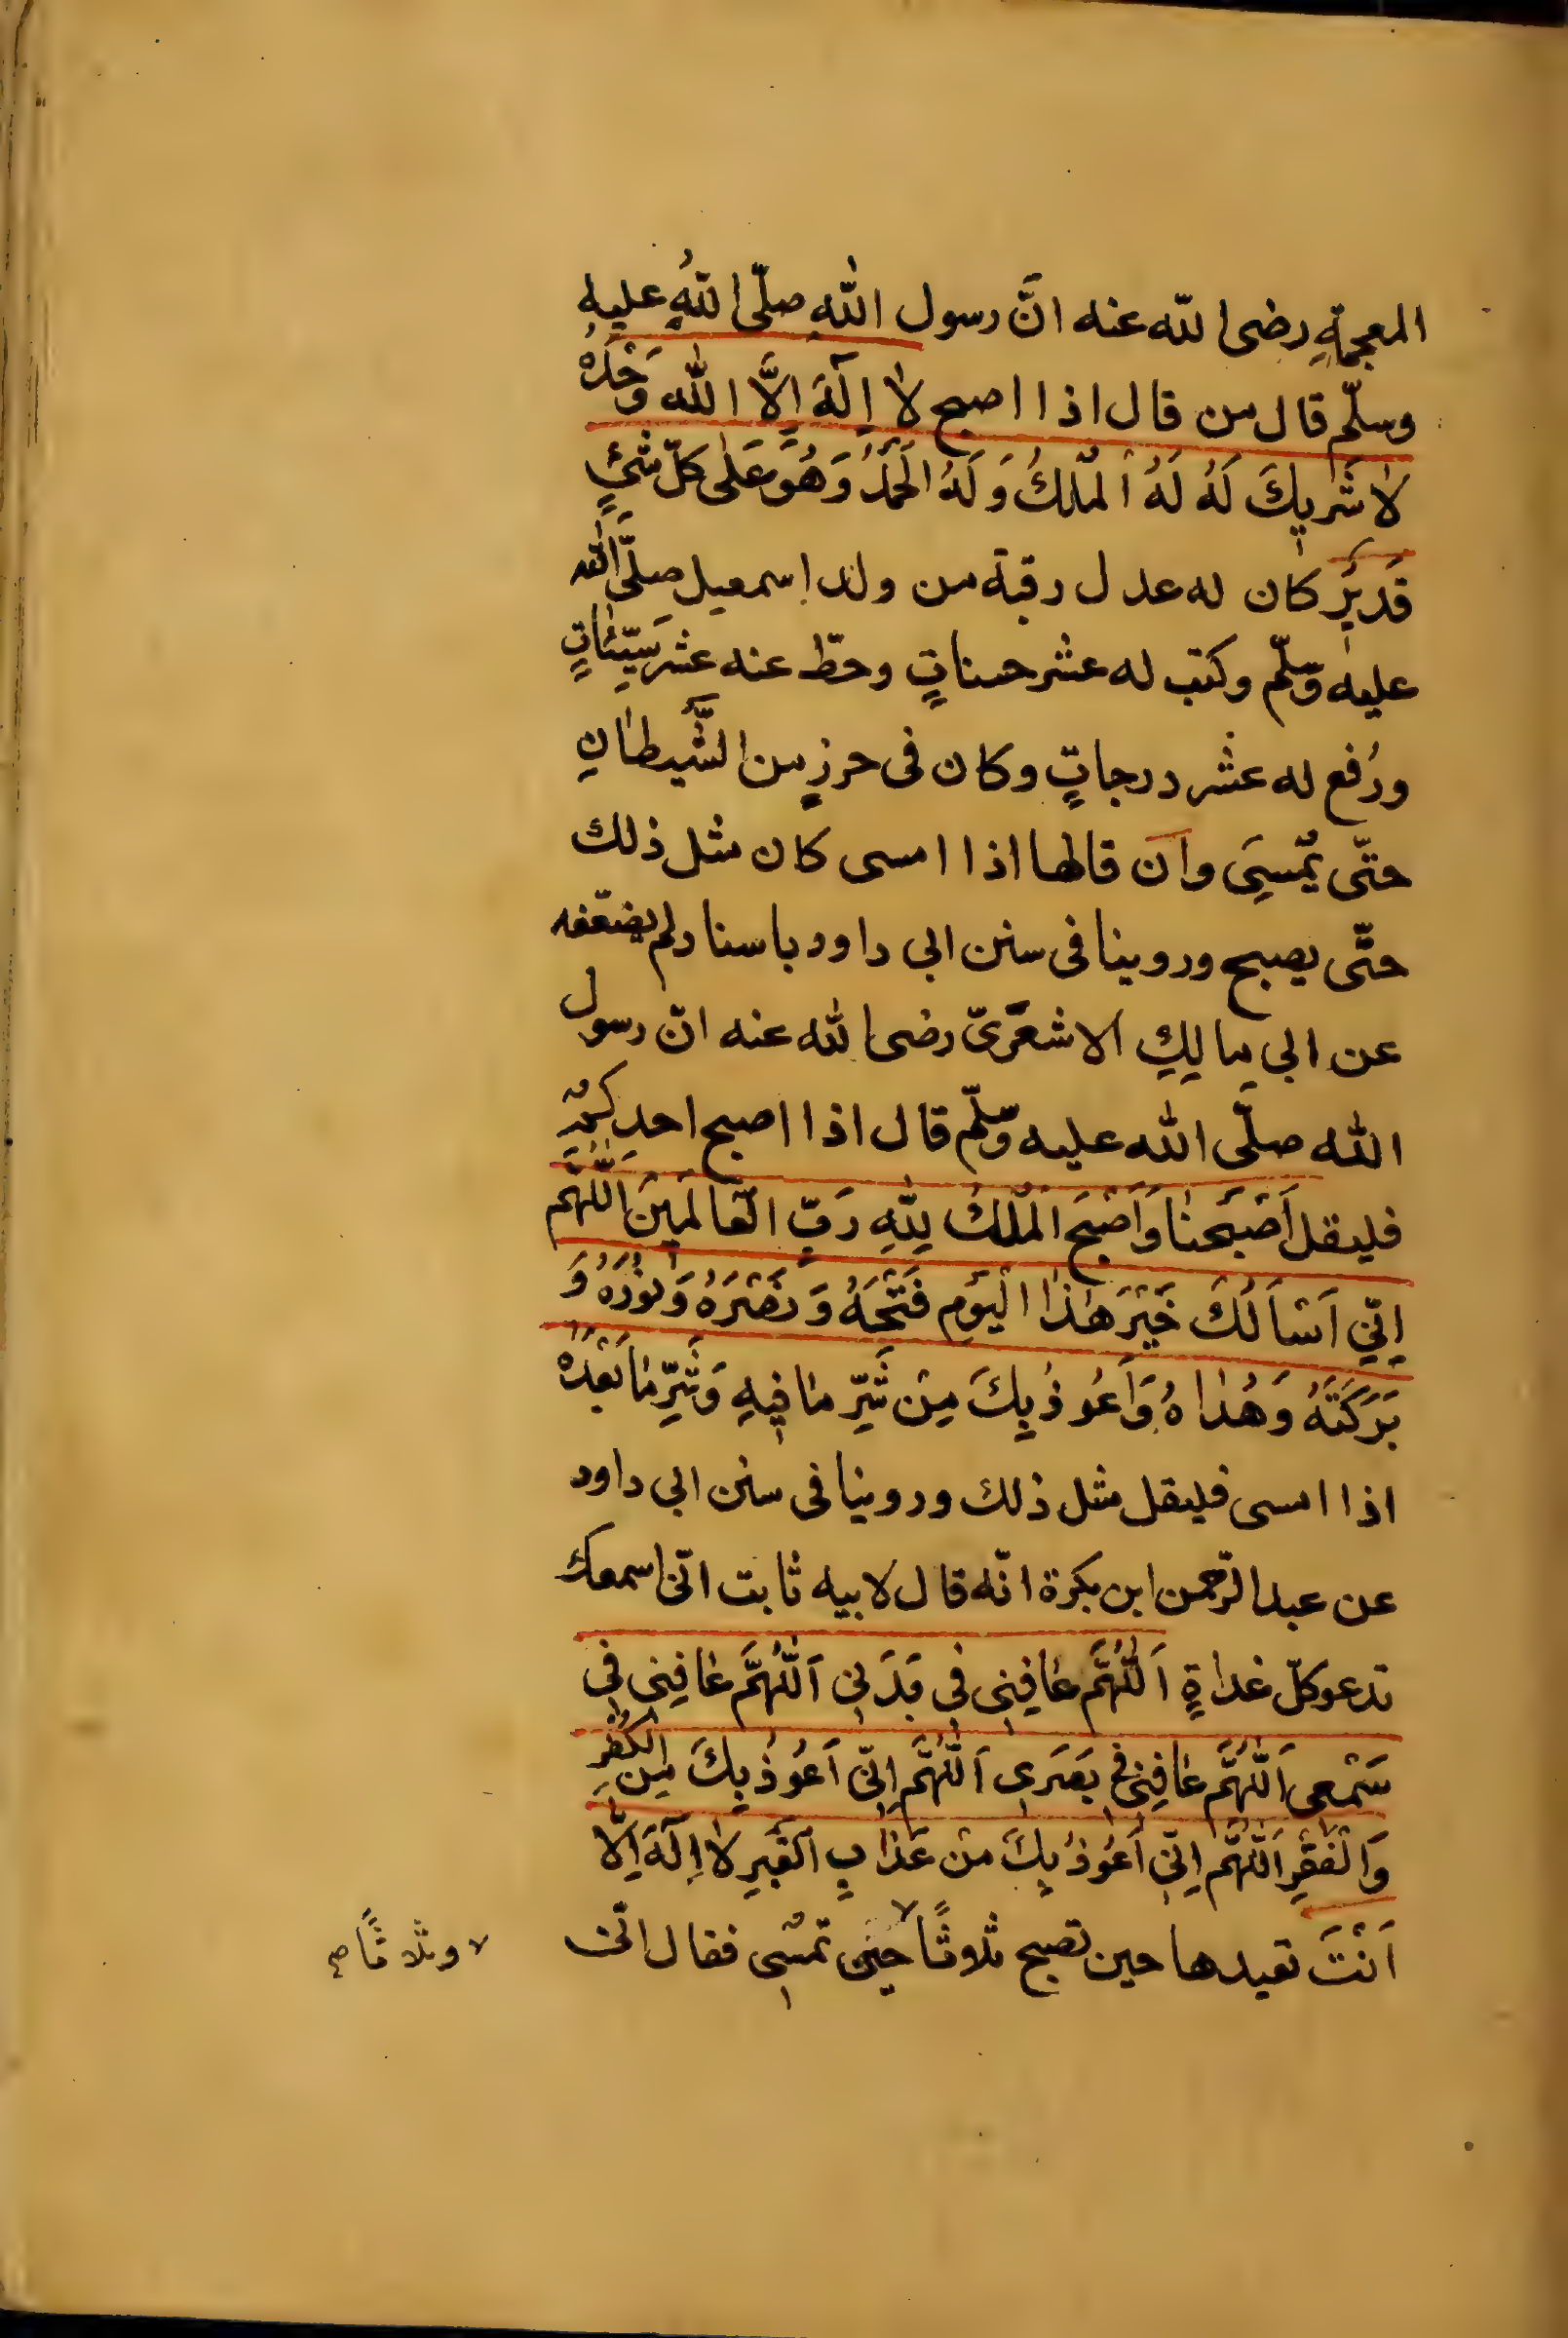 المعجمةِ رضى الله عنه انَّ رسول الله صلّى اللهُ عليهِ
وسلّم قال من قال اذا اصبح لا اِلٓهَ اِلَّا الله وَحْدَهُ
لا شَرِيكَ لَهُ لَهُ الْمُلْكُ وَلَهُ الْحَمْدُ وَهُوَ عَلٰى كلّ شَئٍ
قَدِيْرٌ كان له عدل رقبة من ولد اسمعيل صلَّى الله
عليه وسلّم وكتب له عشر حسناتٍ وحطّ عنه عشر سَيِّئاتٍ
ورُفع له عشر درجاتٍ وكان فى حرزٍ من الشَّيطانِ
حتّى يُمْسِىَ وان قالها اذا امسى كان مثل ذلك
حتّى يصبح وروينا فى سنن ابى داود باسناد لم يضعّفه
عن ابى مالكٍ الاشعَرىّ رضى الله عنه انّ رسول
الله صلّى الله عليه وسلّم قال اذا اصبح احدكُمْ
فليقل اَصْبَحْنا وَاَصْبَحَ الْمُلْكُ لِلّٰهِ رَبِّ الْعَالَمِيْنَ اللّٰهُمَّ
اِنّى اَسْاَلُكَ خَيْرَ هٰذا الْيَوْمِ فَتْحَهُ وَنَصْرَهُ وَنُوْرَهُ وَ
بَرَكَتَهُ وَهُداهُ وَاَعُوْذُ بِكَ مِنْ شَرِّ ما فِيهِ وَشَرِّ ما بَعْدَهُ
اذا امسى فليقل مثل ذلك وروينا فى سنن ابى داود
عن عبد الرّحمن ابن بكرة انّه قال لابيه ثابت انّى اسمعك
تدعو كلّ غداةٍ اَللّٰهُمَّ عافِنِى فِى بَدَنِى اَللّٰهُمَّ عافِنِى فِى
سَمْعِى اَللّٰهُمَّ عافِنِى فى بَصَرِى اَللّٰهُمَّ اِنّى اَعُوْذُ بِكَ مِنَ الْكُفْرِ
وَالْفَقْرِ اَللّٰهُمَّ اِنّى اَعُوْذُ بِكَ مِنْ عَذابِ الْقَبْرِ لا اِلٓهَ اِلّا
اَنْتَ تعيدها حين تصبح ثلاثًا حين تمسى فقال انّى
وثلاثًا صح